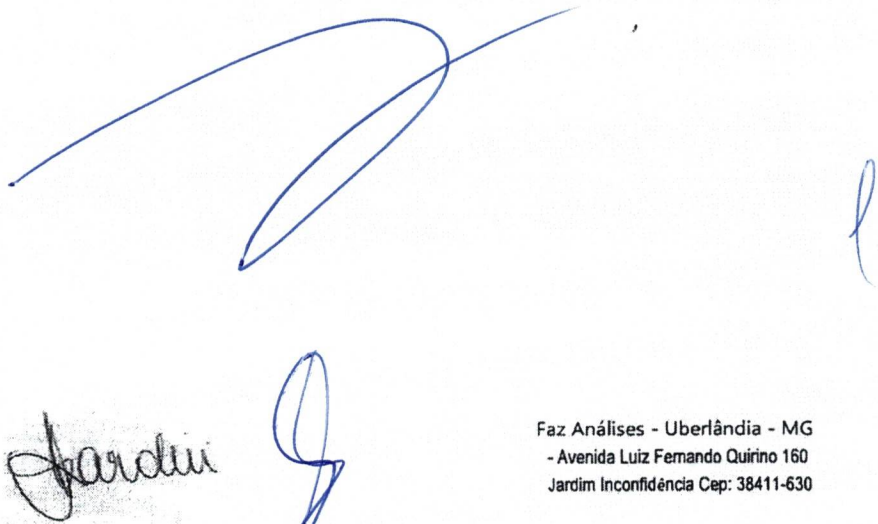 Faz Análises - Uberlândia - MG
- Avenida Luiz Fernando Quirino 160
Jardim Inconfidência Cep: 38411-630